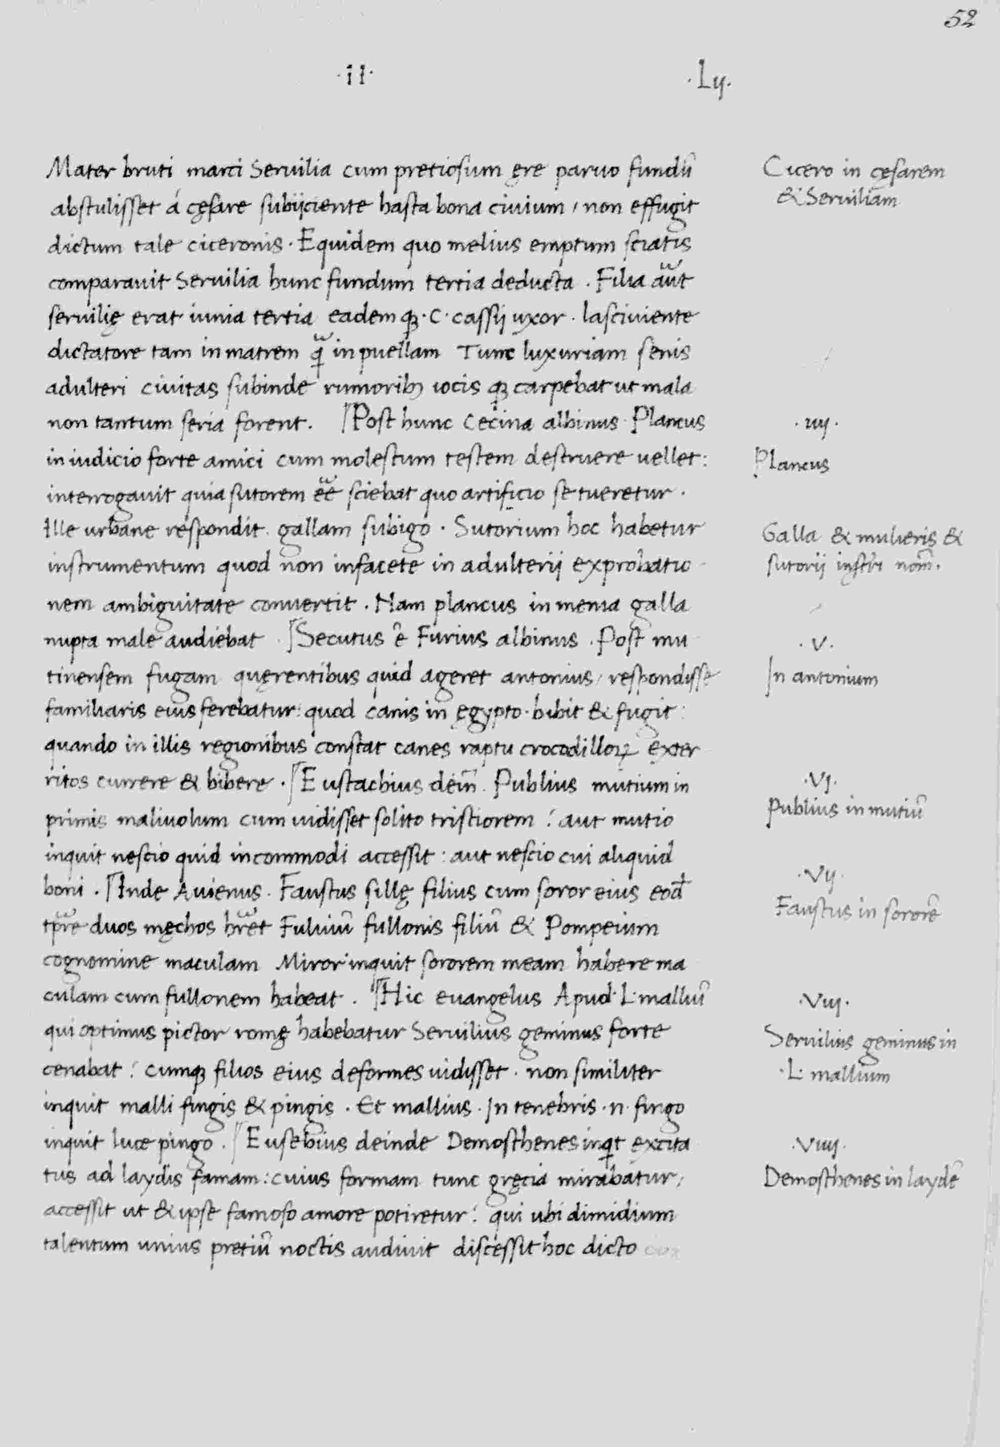 52
·II· ·Lij·
Mater bruti marci Seruilia cum pretiosum ęre paruo fundū
abstulisset á cęsare subijciente hasta bona ciuium, non effugit
dictum tale ciceronis. Equidem quo melius emptum sciatis
comparauit Seruilia hunc fundum tertia deducta. Filia aūt
seruilię erat iunia tertia eademqꝫ ·C· cassij uxor. lasciuiente
dictatore tam in matrem q̄ in puellam Tunc luxuriam senis
adulteri ciuitas subinde rumoribꝫ iocisqꝫ carpebat ut mala
non tantum seria forent. Post hunc Cecina albinus. Plancus
in iudicio forte amici cum molestum testem destruere uellet:
interrogauit quia sutorem eē̄ sciebat quo artificio se tueretur.
Ille urbane respondit. gallam subigo. Sutorium hoc habetur
instrumentum quod non infacete in adulterii exprobatio-
nem ambiguitate conuertit. Nam plancus in menia galla
nupta male audiebat. Secutus ē Furius albinus. Post mu
tinensem fugam quęrentibus quid ageret antonius, respondisse
familiaris eius ferebatur: quod canis in ęgypto. bibit & fugit:
quando in illis regionibus constat canes raptu crocodilloꝝ exter
ritos currere & bibere. Eustachius dein̄. Publius mutium in
primis maliuolum cum uidisset solito tristiorem: aut mutio
inquit nescio quid incommodi accessit: aut nescio cui aliquid
boni. Inde Auienus. Faustus sillę filius cum soror eius eod̄
tp̄re duos męchos hr̄et Fuluiū fullonis filiū & Pompeium
cognomine maculam Miror inquit sororem meam habere ma
culam cum fullonem habeat. Hic euangelus Apud ·L· malliū
qui optimus pictor romę habebatur Seruilius geminus forte
cenabat: cumqꝫ filios eius deformes uidisset. non similiter
inquit malli fingis & pingis. Et mallius. In tenebris ·n· fingo
inquit luce pingo. Eusebius deinde Demosthenes inqt excita
tus ad laydis famam: cuius formam tunc gręcia mirabatur,
accessit ut & ipse famoso amore potiretur: qui ubi dimidium
talentum unius pretiū noctis audiuit discessit hoc dicto
Cicero in cęsarem
& Seruiliam
·iiij·
Plancus
Galla & mulieris &
sutorij instri nom̄.
·V·
In antonium
·VI·
Publius in mutiū
·Vij·
Faustus in sororē
·Viij·
Seruilius geminus in
·L· mallium
·Viiij·
Demosthenes in laydē